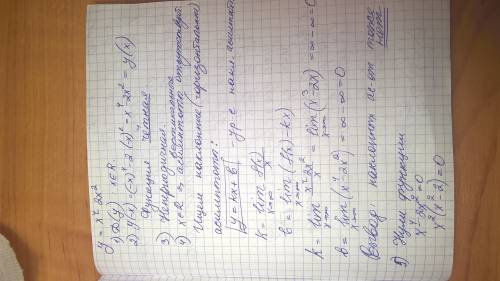 y = x⁴ - 2x²
1) D(y) x∈R
2) y(-x) = (-x)⁴ - 2(-x)² = x⁴ - 2x² = y(x)
Функция чётная
3) Непериодичная
4) x∈R => вертикальные асимптоты отсутствуют.
Ищем наклонные (горизонтальные)
асимптоты:
y = kx + b - ур-е накл. асимптоты
k = lim x→∞ f(x)/x
b = lim x→∞ (f(x) - kx)
k = lim x→∞ x⁴-2x²/x = lim x→∞ (x³-2x) = ∞ - ∞ = 0
b = lim x→∞ (x⁴ - 2x²) = ∞ - ∞ = 0
Вывод: наклонит ас-от тоже
нет.
5) Нули функции
x⁴ - 2x² = 0
x²(x² - 2) = 0